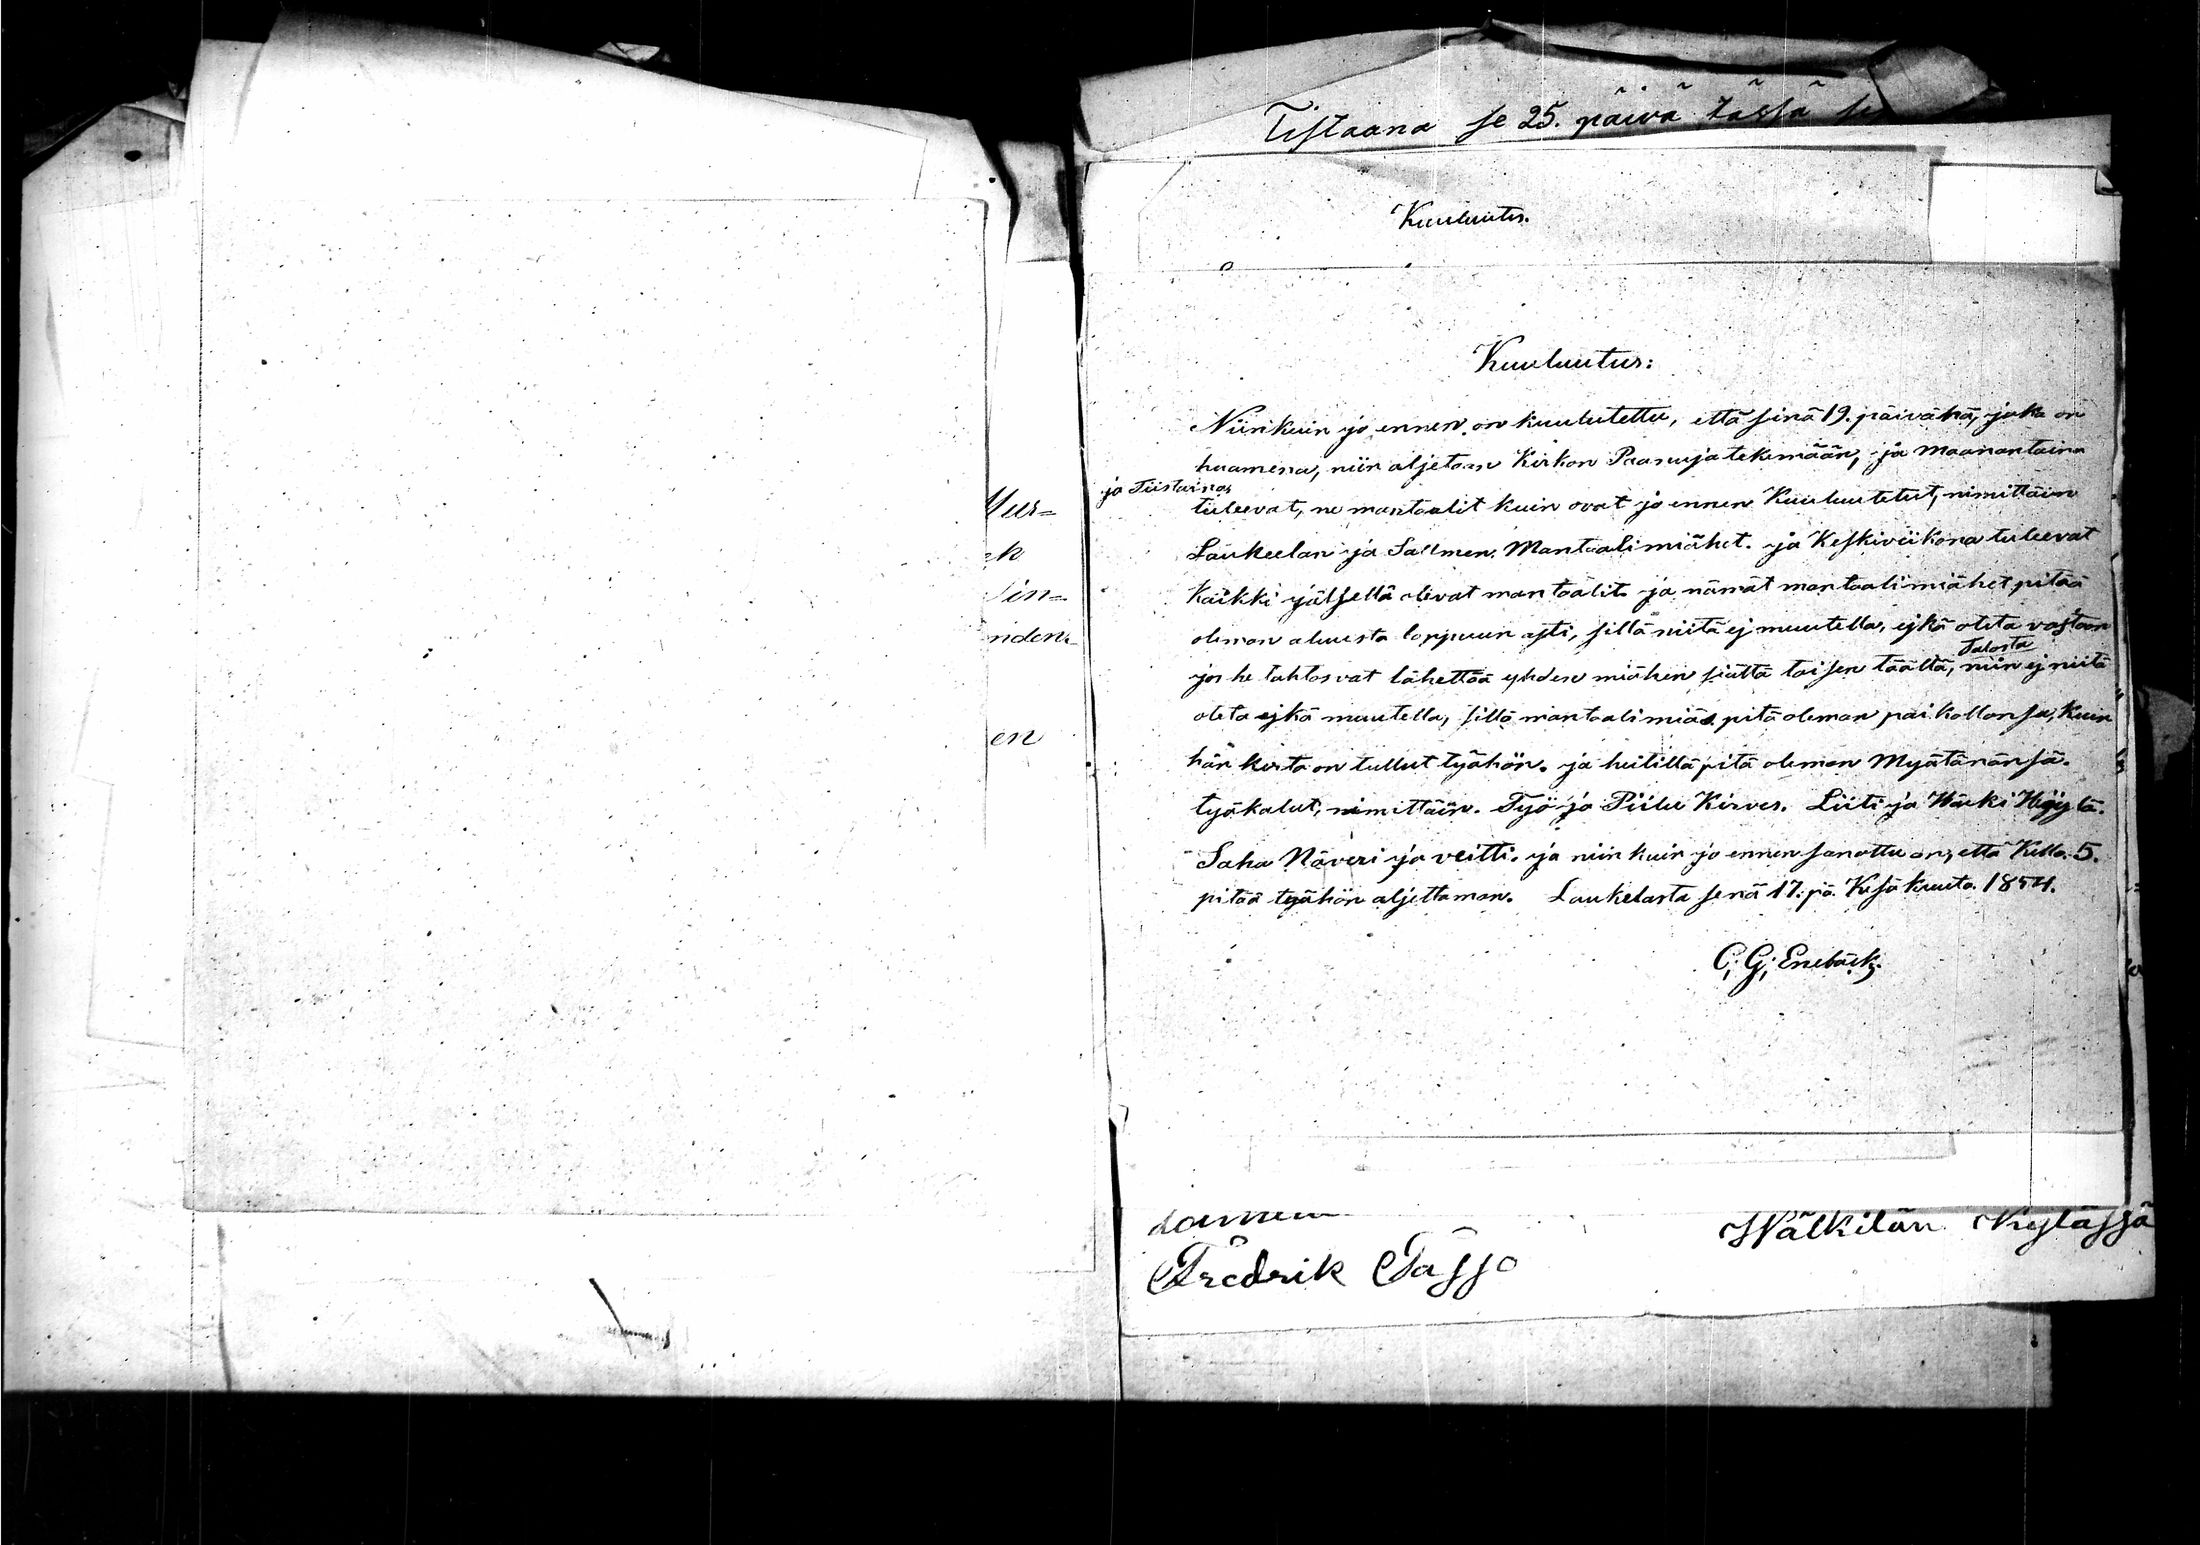 Mur=
ek
Sin=
nden
en
Tistaana se 25. päivä tässä
Kuuluutus.
Kuuluutus:
Niinkuin jo ennen on kuulutettu, että sinä 19. päivänä, joka on
huamena, niin aljetaan Kirkon Paanuja tekemään, ja Maanantaina
ja Tiistaina
tuleevat, ne mantaalit kuin ovat jo ennen Kuuluutetut, nimittäin
Laukeelan ja Sallmen Mantaalimiähet. ja Keskiviikona tuleevat
Kaikki jälsellä olevat mantaalit ja nämät mantaalimiähet pitää
oleman aluusta loppuun asti, sillä niitä ej muutella, ejkä oteta vastaan
Talosta
jos he tahtosvat lähettää yhden miähen siältä toisen täältä, niin ej niitä
oteta ejkä muutella, sillä mantaalimiäs pitä oleman paikallansa, Kuin
hän kerta on tullut tyähön. ja heitillä pitä oleman Myätänänsä.
tyäkalut, nimittäin. Työ ja Piilu Kirves. Liiti ja Härki Höylä.
Saha Näveri ja veitti. ja niin kuin jo ennen sanottu on, että Kello 5.
pitää tyähön aljettaman. Laukelasta senä 17. pä. Kesäkuuta 1854.
C; G; Enebäck.
Fredrik Tässo
Wälkilän Kylässä